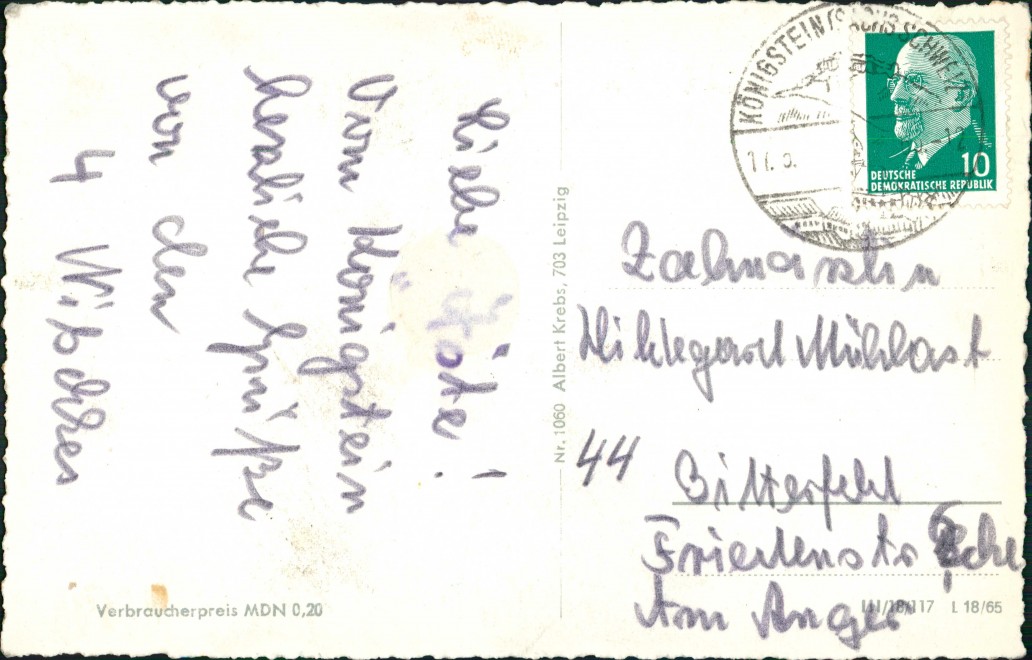 Liebe Göte!
Vom Königstein
herzliche Grüße
von den
4 Wißchers
KÖNIGSTEIN (SÄCHS. SCHWEIZ)
DEUTSCHE
DEMOKRATISCHE REPUBLIK
10
Zahnärztin
Hildegard Mühlast
44 Bitterfeld
Friedenstr Ecke
Am Anger
Nr. 1060 Albert Krebs, 703 Leipzig
Verbraucherpreis MDN 0,20
III/18/117 L 18/65